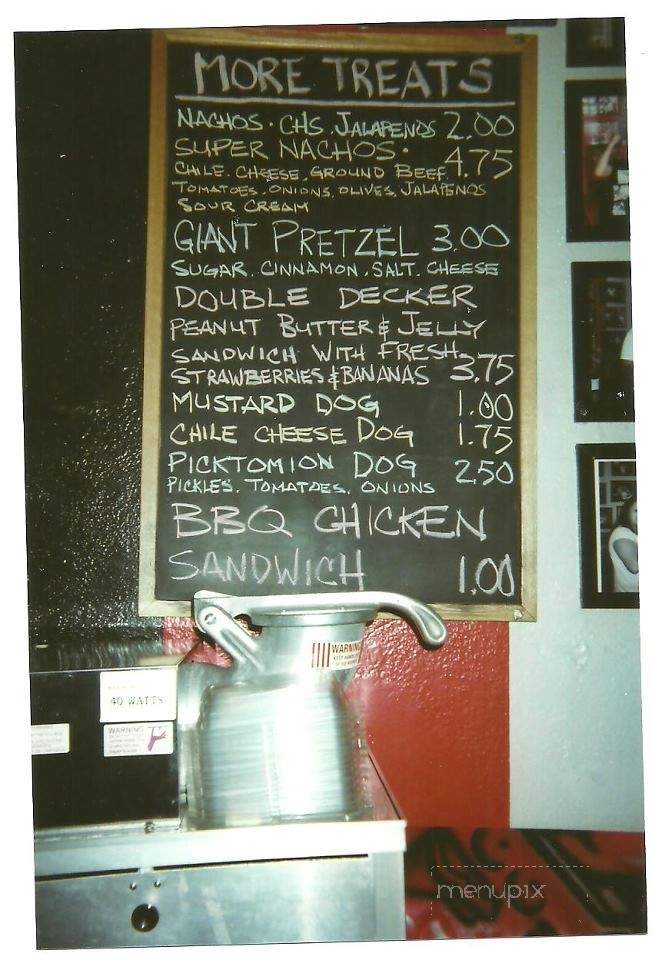 MORE TREATS
NACHOS. CHS. JALAPENOS 2.00
SUPER NACHOS. 4.75
CHILE. CHEESE. GROUND BEEF.
TOMATOES. ONIONS. OLIVES. JALAPENOS
SOUR CREAM
GIANT PRETZEL 3.00
SUGAR. CINNAMON. SALT. CHEESE
DOUBLE DECKER
PEANUT BUTTER & JELLY
SANDWICH WITH FRESH
STRAWBERRIES & BANANAS 3.75
MUSTARD DOG 1.00
CHILE CHEESE DOG 1.75
PICKTOMION DOG 2.50
PICKLES. TOMATOES. ONIONS
BBQ CHICKEN
SANDWICH 1.00
WARNING
40 WATTS
WARNING
menupix